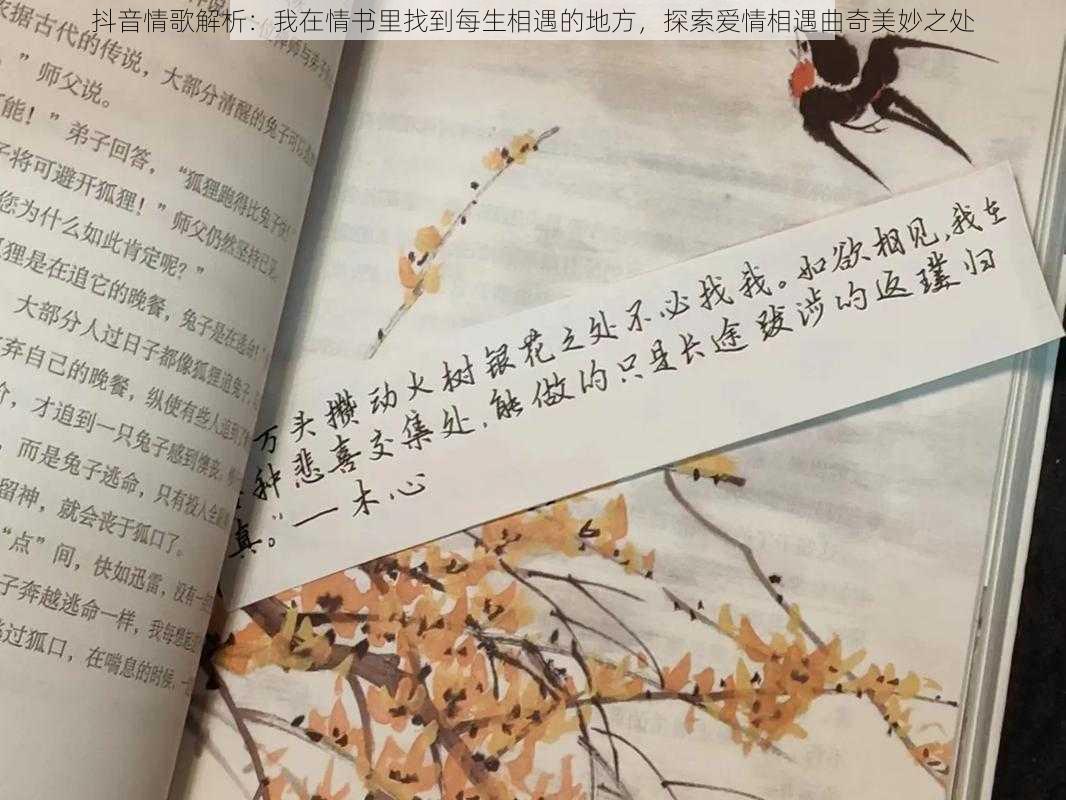 抖音情歌解析：我在情书里找到每生相遇的地方，探索爱情相遇曲奇美妙之处
依据古代的传说，大部分清醒的兔子可以
”师父说。
能！”弟子回答，“狐狸跑得比兔子快！”
子将可避开狐狸！”师父仍然坚持己见。
您为什么如此肯定呢？”
狐狸是在追它的晚餐，兔子是在逃命！”
大部分人过日子都像狐狸追兔子，
弃自己的晚餐，纵使有些人追到了
价，才追到一只兔子感到懊丧，
，而是兔子逃命，只有投入全
留神，就会丧于狐口了。
“点”间，快如迅雷，没有一
子奔越逃命一样，我每想能
过狐口，在喘息的时候，一
万头攒动火树银花之处不必找我。如欲相见，我在
种悲喜交集处，能做的只是长途跋涉的返璞归
真。”—木心